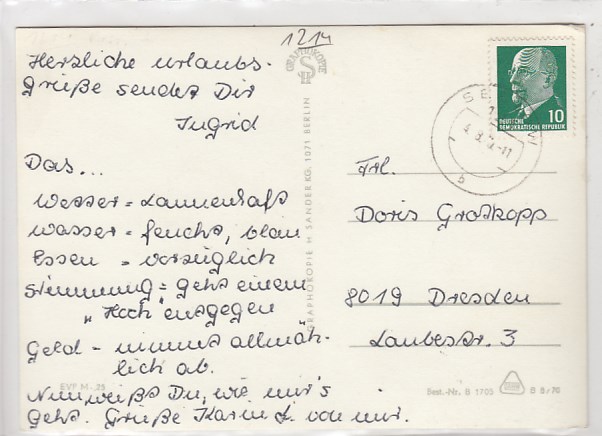 1214
Herzliche Urlaubs-
grüße sendet Dir
Ingrid
Das...
Wetter = Launenhaft
Wasser = feucht, blau
Essen = vorzüglich
Stimmung = geht einem
„Hoch" entgegen
Geld - nimmt allmäh-
lich ab.
Nun weißt Du, wie mir's
geht. Grüße Karin L. von mir.
EVP M -,25
GRAPHOKOPIE
GRAPHOKOPIE H. SANDER KG. 1071 BERLIN
10
DEUTSCHE
DEMOKRATISCHE REPUBLIK
b
Frl.
Doris Großkopp
8019 Dresden
Laubestr. 3
Best.-Nr. B 1705
B 8/70